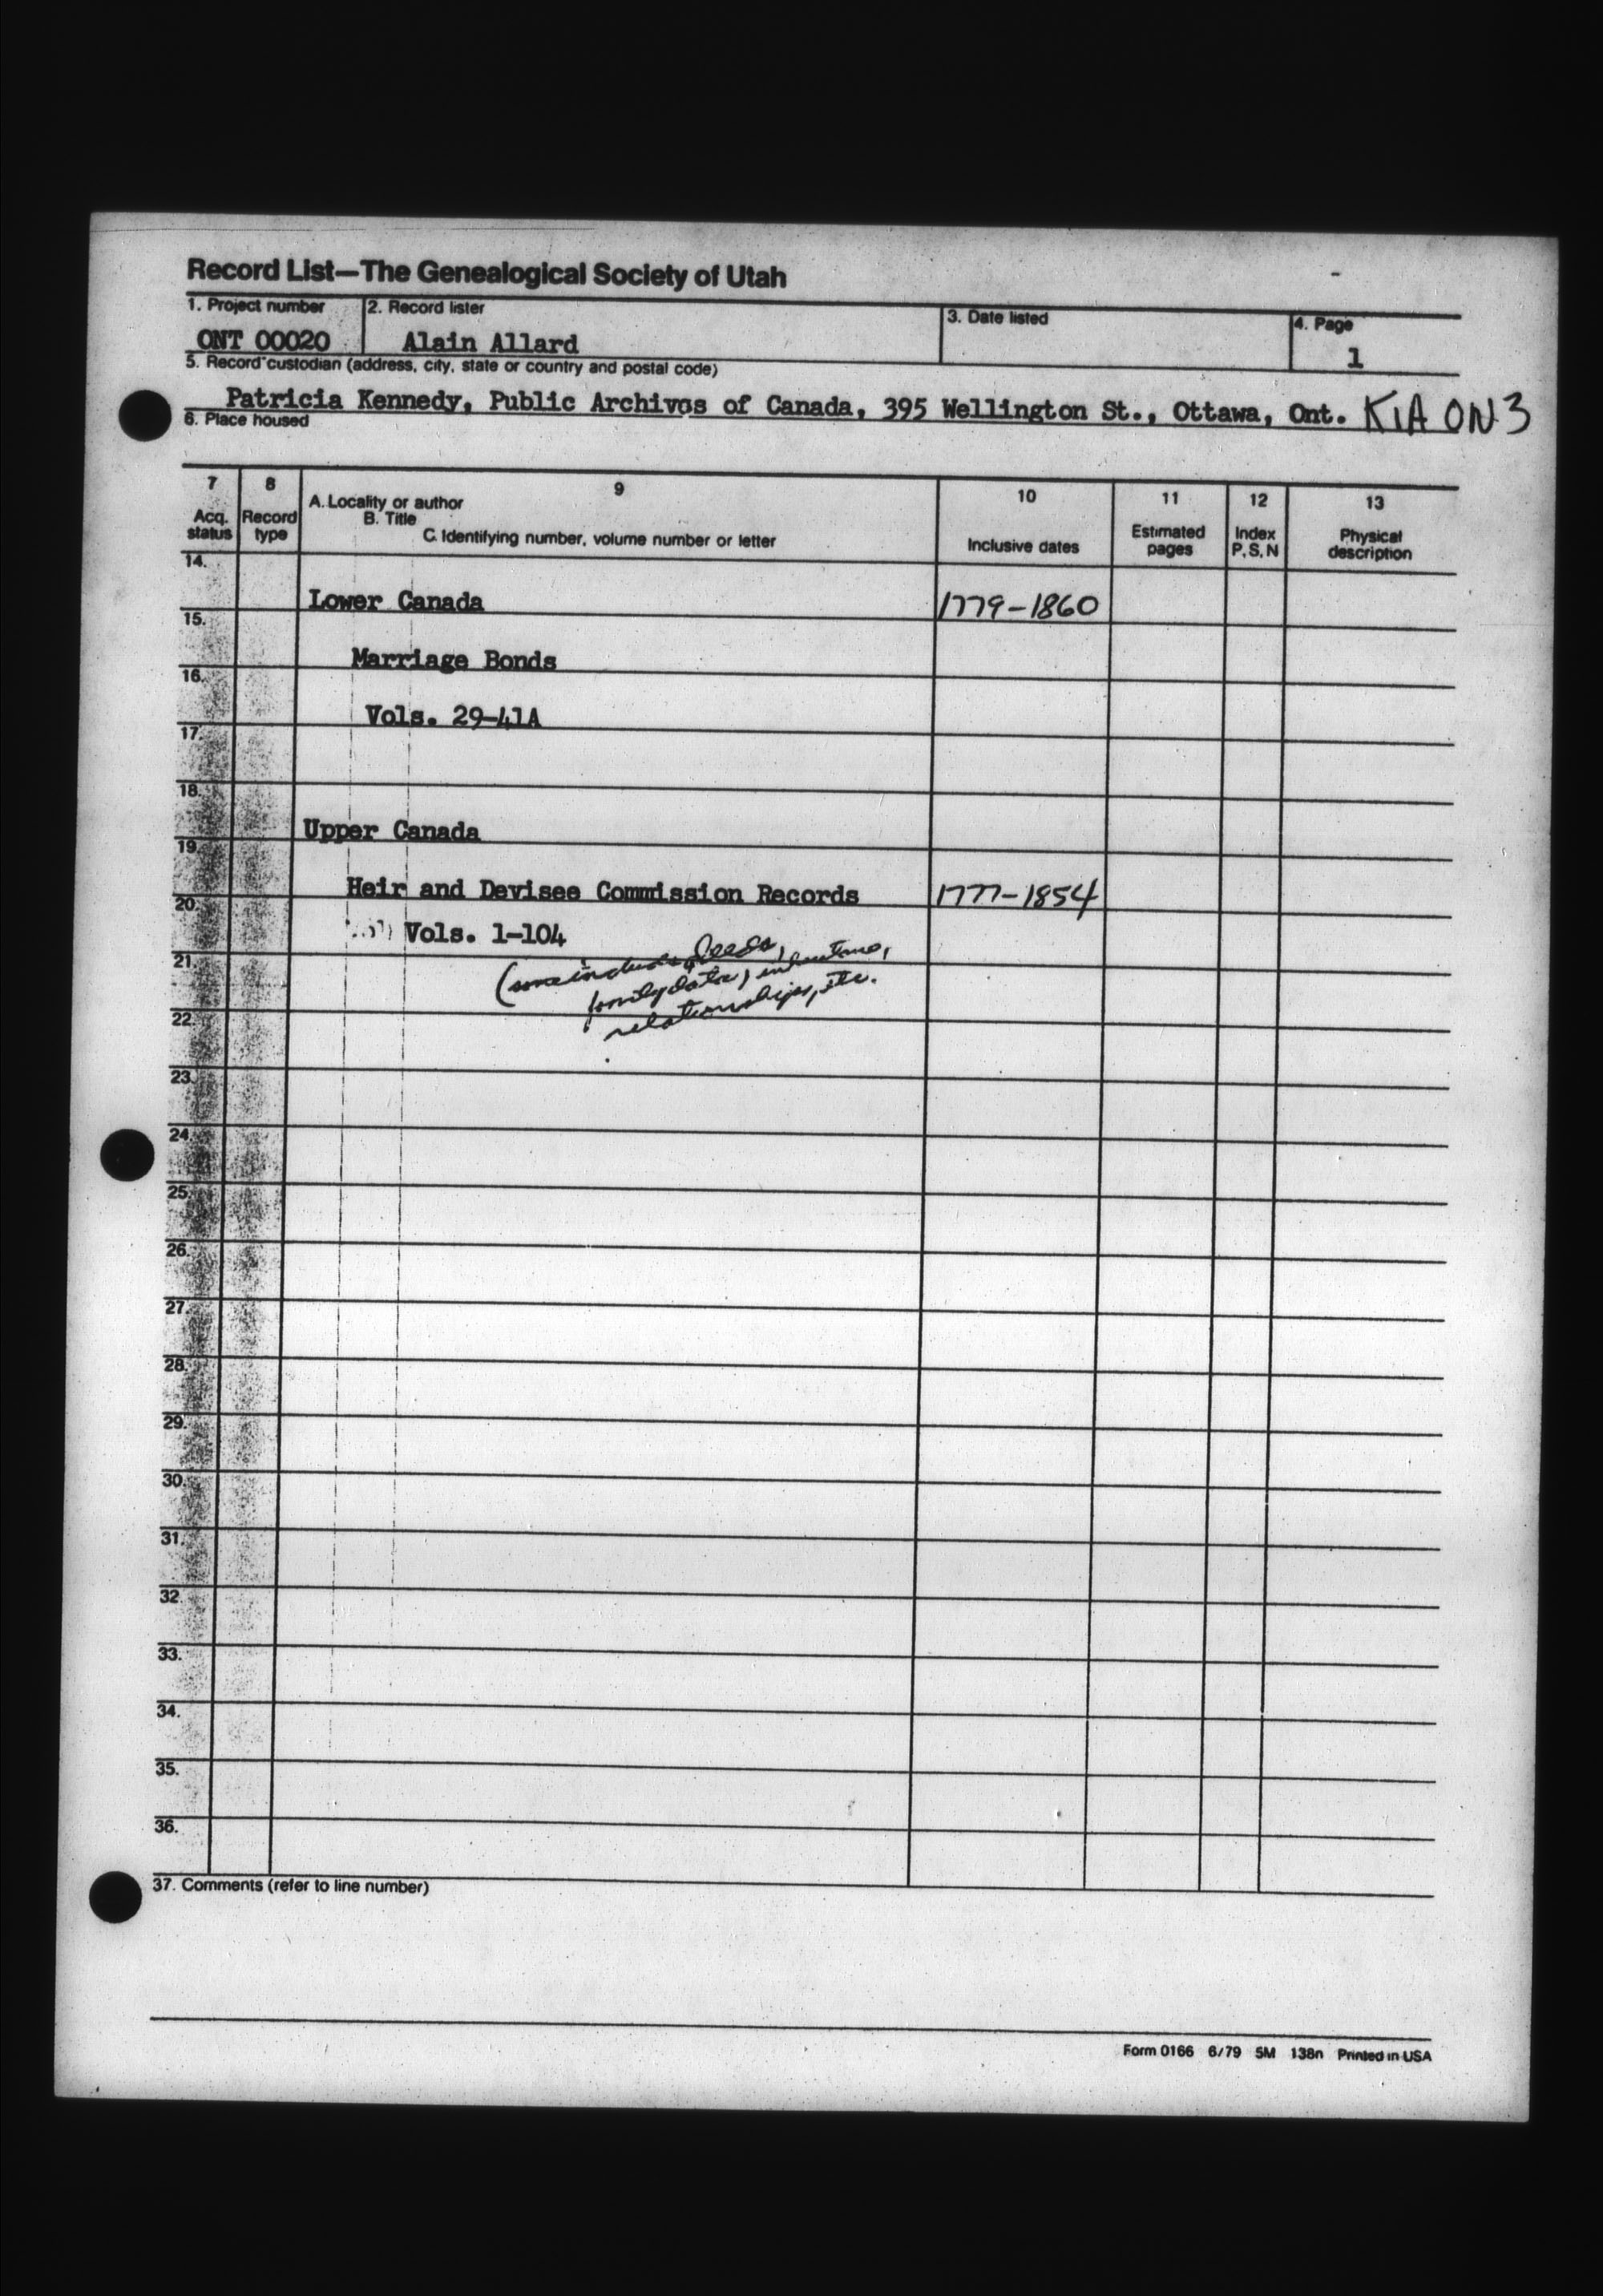 Record List—The Genealogical Society of Utah
1. Project number 2. Record lister 3. Date listed 4. Page
ONT 00020 Alain Allard 1
5. Record custodian (address, city, state or country and postal code)
Patricia Kennedy, Public Archives of Canada, 395 Wellington St., Ottawa, Ont. K1A 0N3
6. Place housed
7 8 9 10 11 12 13
A. Locality or author
Acq. Record B. Title Estimated Index Physical
status type C. Identifying number, volume number or letter Inclusive dates pages P, S, N description
14.
Lower Canada 1779-1860
15.
Marriage Bonds
16.
Vols. 29-41A
17.
18.
Upper Canada
19.
Heir and Devisee Commission Records 1777-1854
20.
Vols. 1-104
21.
(some include deeds,
family data, inheritance,
22.
relationships, etc.
23.
24.
25.
26.
27.
28.
29.
30.
31.
32.
33.
34.
35.
36.
37. Comments (refer to line number)
Form 0166 6/79 5M 138n Printed in USA